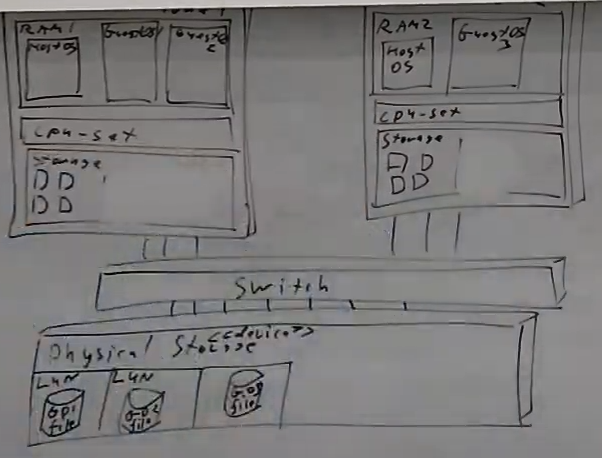 RAM1
Host OS
Guest OS1
Guest OS
2
cpu-set
Storage
RAM2
Host
OS
Guest OS
3
cpu-set
Storage
Switch
Physical Storage
<<device>>
LUN
LUN
GO1
file
GO2
file
GO3
file